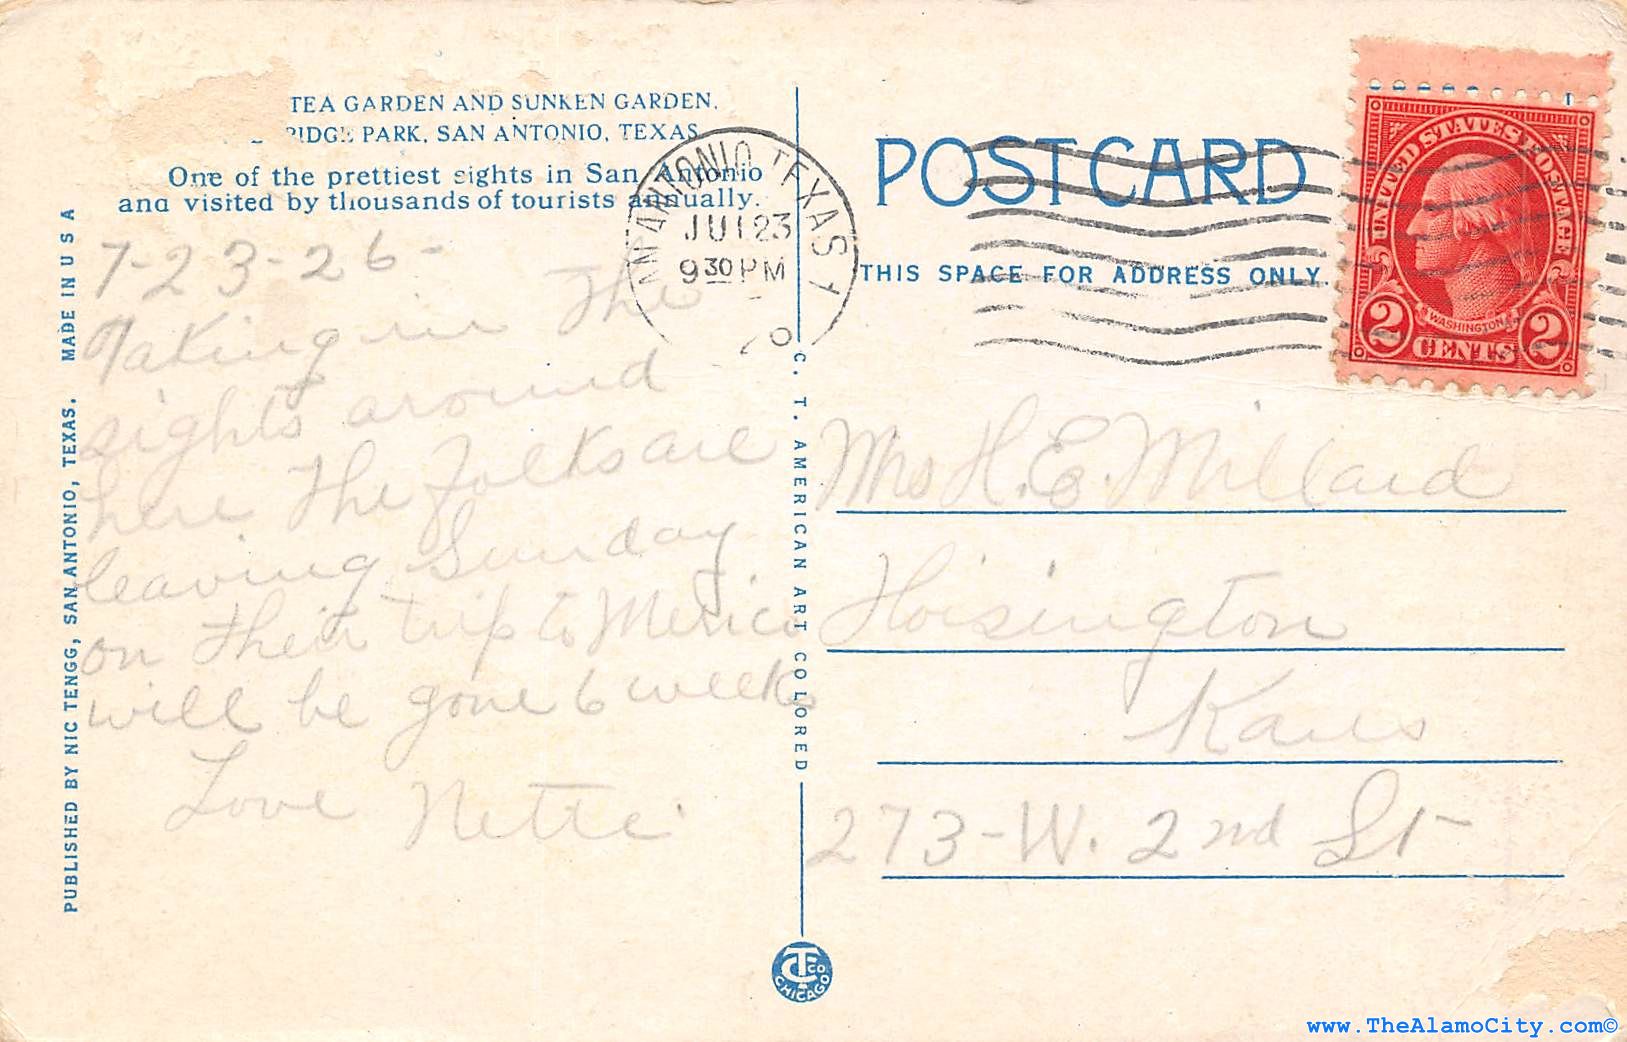 TEA GARDEN AND SUNKEN GARDEN,
PARK, SAN ANTONIO, TEXAS
One of the prettiest sights in San Antonio
and visited by thousands of tourists annually.
7-23-26-
Taking in the
sights around
here the folks are
leaving Sunday
on their trip to Mexico
will be gone 6 weeks
Love Nette
PUBLISHED BY NIC TENGG, SAN ANTONIO, TEXAS. MADE IN U S A
C. T. AMERICAN ART COLORED
SAN ANTONIO TEXAS 1
JUL 23
9 30 PM
POST CARD
THIS SPACE FOR ADDRESS ONLY.
UNITED STATES POSTAGE
WASHINGTON
2 CENTS 2
Mrs H. E. Millard
Hoisington
Kans
273-W. 2nd St
CT CO.
CHICAGO
www.TheAlamoCity.com©